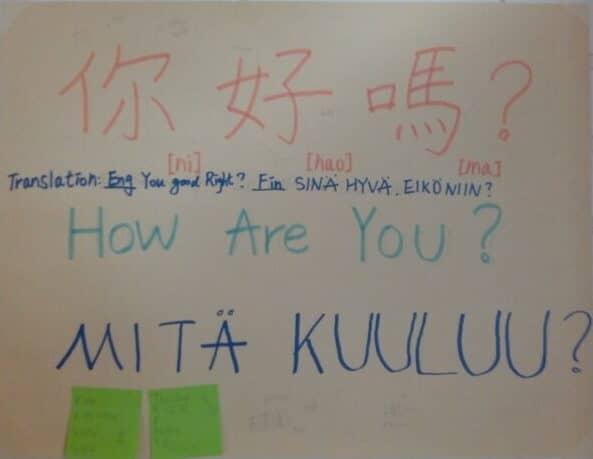 你好嗎？
[ni] [hao] [ma]
Translation: Eng You good Right? Fin SINÄ HYVÄ. EIKÖ NIIN?
How Are You?
MITÄ KUULUU?